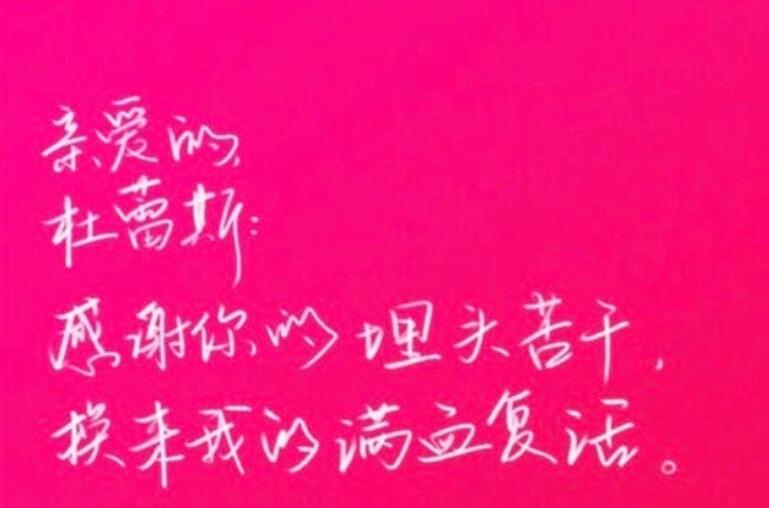 亲爱的
杜蕾斯：
感谢你的埋头苦干，
换来我的满血复活。